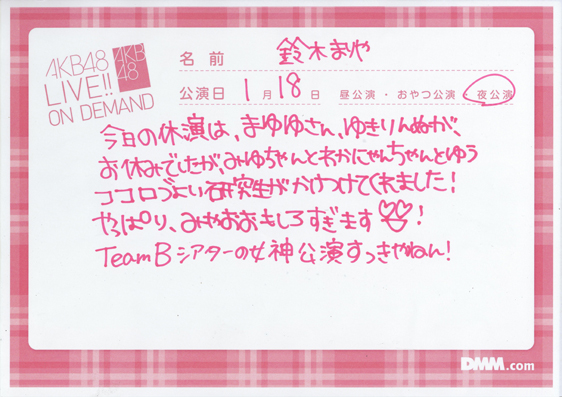 AKB48
LIVE!!
ON DEMAND
AKB
48
名前 鈴木まりや
公演日 1月18日 昼公演・おやつ公演・夜公演
今日の休演は、まゆゆさん、ゆきりんぬが、
お休みでしたが、みゆちゃんとわかにゃんちゃんとゆう
ココロづよい研究生がかけつけてくれました!
やっぱり、みやおおもしろすぎます!
Team Bシアターの女神公演すっきやねん!
DMM.com